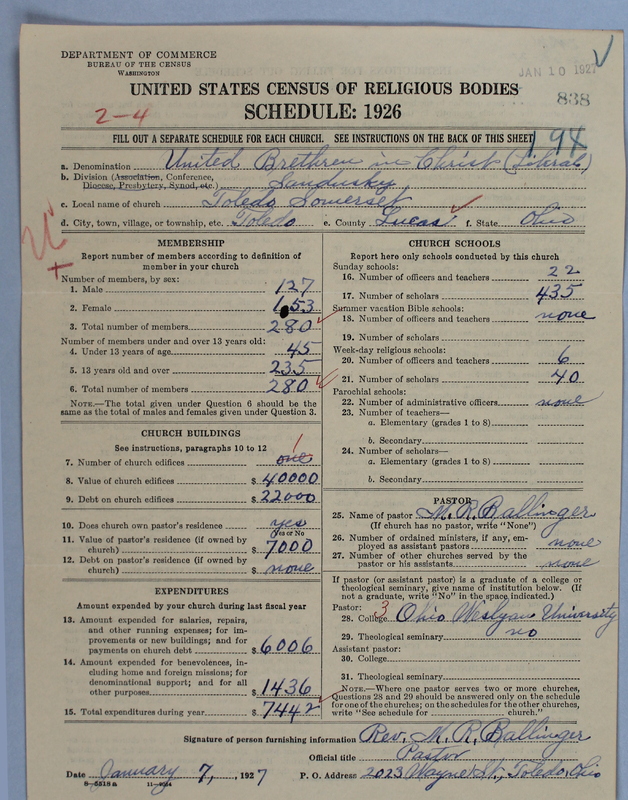 DEPARTMENT OF COMMERCE
BUREAU OF THE CENSUS
WASHINGTON
JAN 10 1927
838
UNITED STATES CENSUS OF RELIGIOUS BODIES
SCHEDULE: 1926
2-4
FILL OUT A SEPARATE SCHEDULE FOR EACH CHURCH. SEE INSTRUCTIONS ON THE BACK OF THIS SHEET
a. Denomination United Brethren in Christ (Liberal)
b. Division (Association, Conference, Diocese, Presbytery, Synod, etc.) Sandusky
c. Local name of church Toledo Somerset
d. City, town, village, or township, etc. Toledo e. County Lucas f. State Ohio
MEMBERSHIP
Report number of members according to definition of
member in your church
Number of members, by sex:
1. Male 127
2. Female 153
3. Total number of members 280
Number of members under and over 13 years old:
4. Under 13 years of age 45
5. 13 years old and over 235
6. Total number of members 280
NOTE.—The total given under Question 6 should be
same as the total of males and females given under Question 3.
CHURCH BUILDINGS
See instructions, paragraphs 10 to 12
7. Number of church edifices one 1
8. Value of church edifices $ 40000
9. Debt on church edifices $ 22000
10. Does church own pastor's residence yes
(Yes or No)
11. Value of pastor's residence (if owned by
church) $ 7000
12. Debt on pastor's residence (if owned by
church) $ none
EXPENDITURES
Amount expended by your church during last fiscal year
13. Amount expended for salaries, repairs,
and other running expenses; for im-
provements or new buildings; and for
payments on church debt $ 6006
14. Amount expended for benevolences, in-
cluding home and foreign missions; for
denominational support; and for all
other purposes $ 1436
15. Total expenditures during year $ 7442
CHURCH SCHOOLS
Report here only schools conducted by this church
Sunday schools:
16. Number of officers and teachers 22
17. Number of scholars 435
Summer vacation Bible schools:
18. Number of officers and teachers none
19. Number of scholars
Week-day religious schools:
20. Number of officers and teachers 6
21. Number of scholars 40
Parochial schools:
22. Number of administrative officers none
23. Number of teachers—
a. Elementary (grades 1 to 8)
b. Secondary
24. Number of scholars—
a. Elementary (grades 1 to 8)
b. Secondary
PASTOR
25. Name of pastor M. R. Ballinger
(If church has no pastor, write "None")
26. Number of ordained ministers, if any, em-
ployed as assistant pastors none
27. Number of other churches served by the
pastor or his assistants none
If pastor (or assistant pastor) is a graduate of a college or
theological seminary, give name of institution below. (If
not a graduate, write "No" in the space indicated.)
Pastor:
28. College 3 Ohio Weslyan University
29. Theological seminary no
Assistant pastor:
30. College
31. Theological seminary
NOTE.—Where one pastor serves two or more churches,
Questions 28 and 29 should be answered only on the schedule
for one of the churches; on the schedules for the other churches,
write "See schedule for church."
Signature of person furnishing information Rev. M. R. Ballinger
Official title Pastor
Date January 7, 1927 P. O. Address 2023 Wayne St., Toledo, Ohio
8-5518a